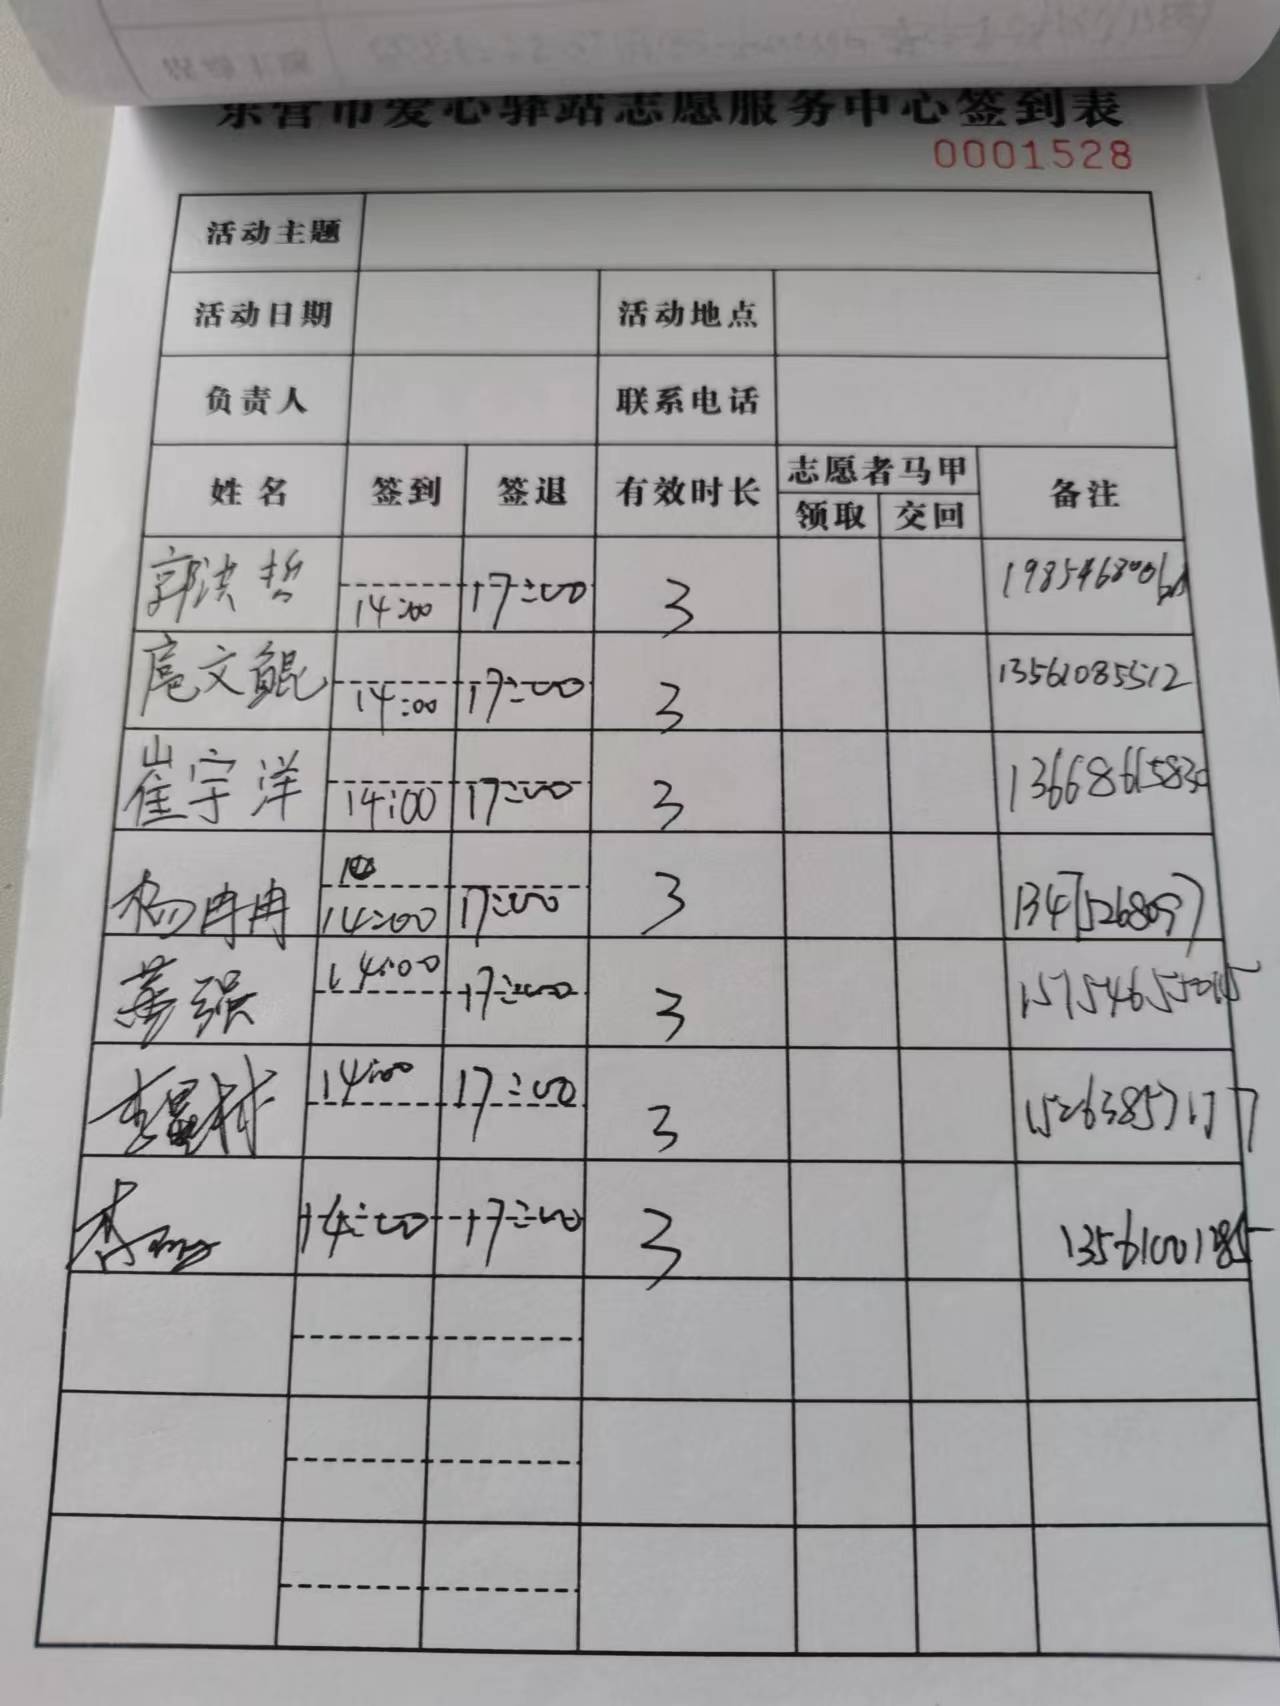 东营市爱心驿站志愿服务中心签到表
0001528
活动主题
活动日期 活动地点
负责人 联系电话
姓名 签到 签退 有效时长 志愿者马甲 备注
领取 交回
郭洪哲 14:00 17:00 3
扈文鲲 14:00 17:00 3 13561085512
崔宇洋 14:00 17:00 3 13668615830
杨冉冉 14:00 17:00 3 13475268097
强 14:00 17:00 3
李 14:00 17:00 3 15263857177
14:00 17:00 3